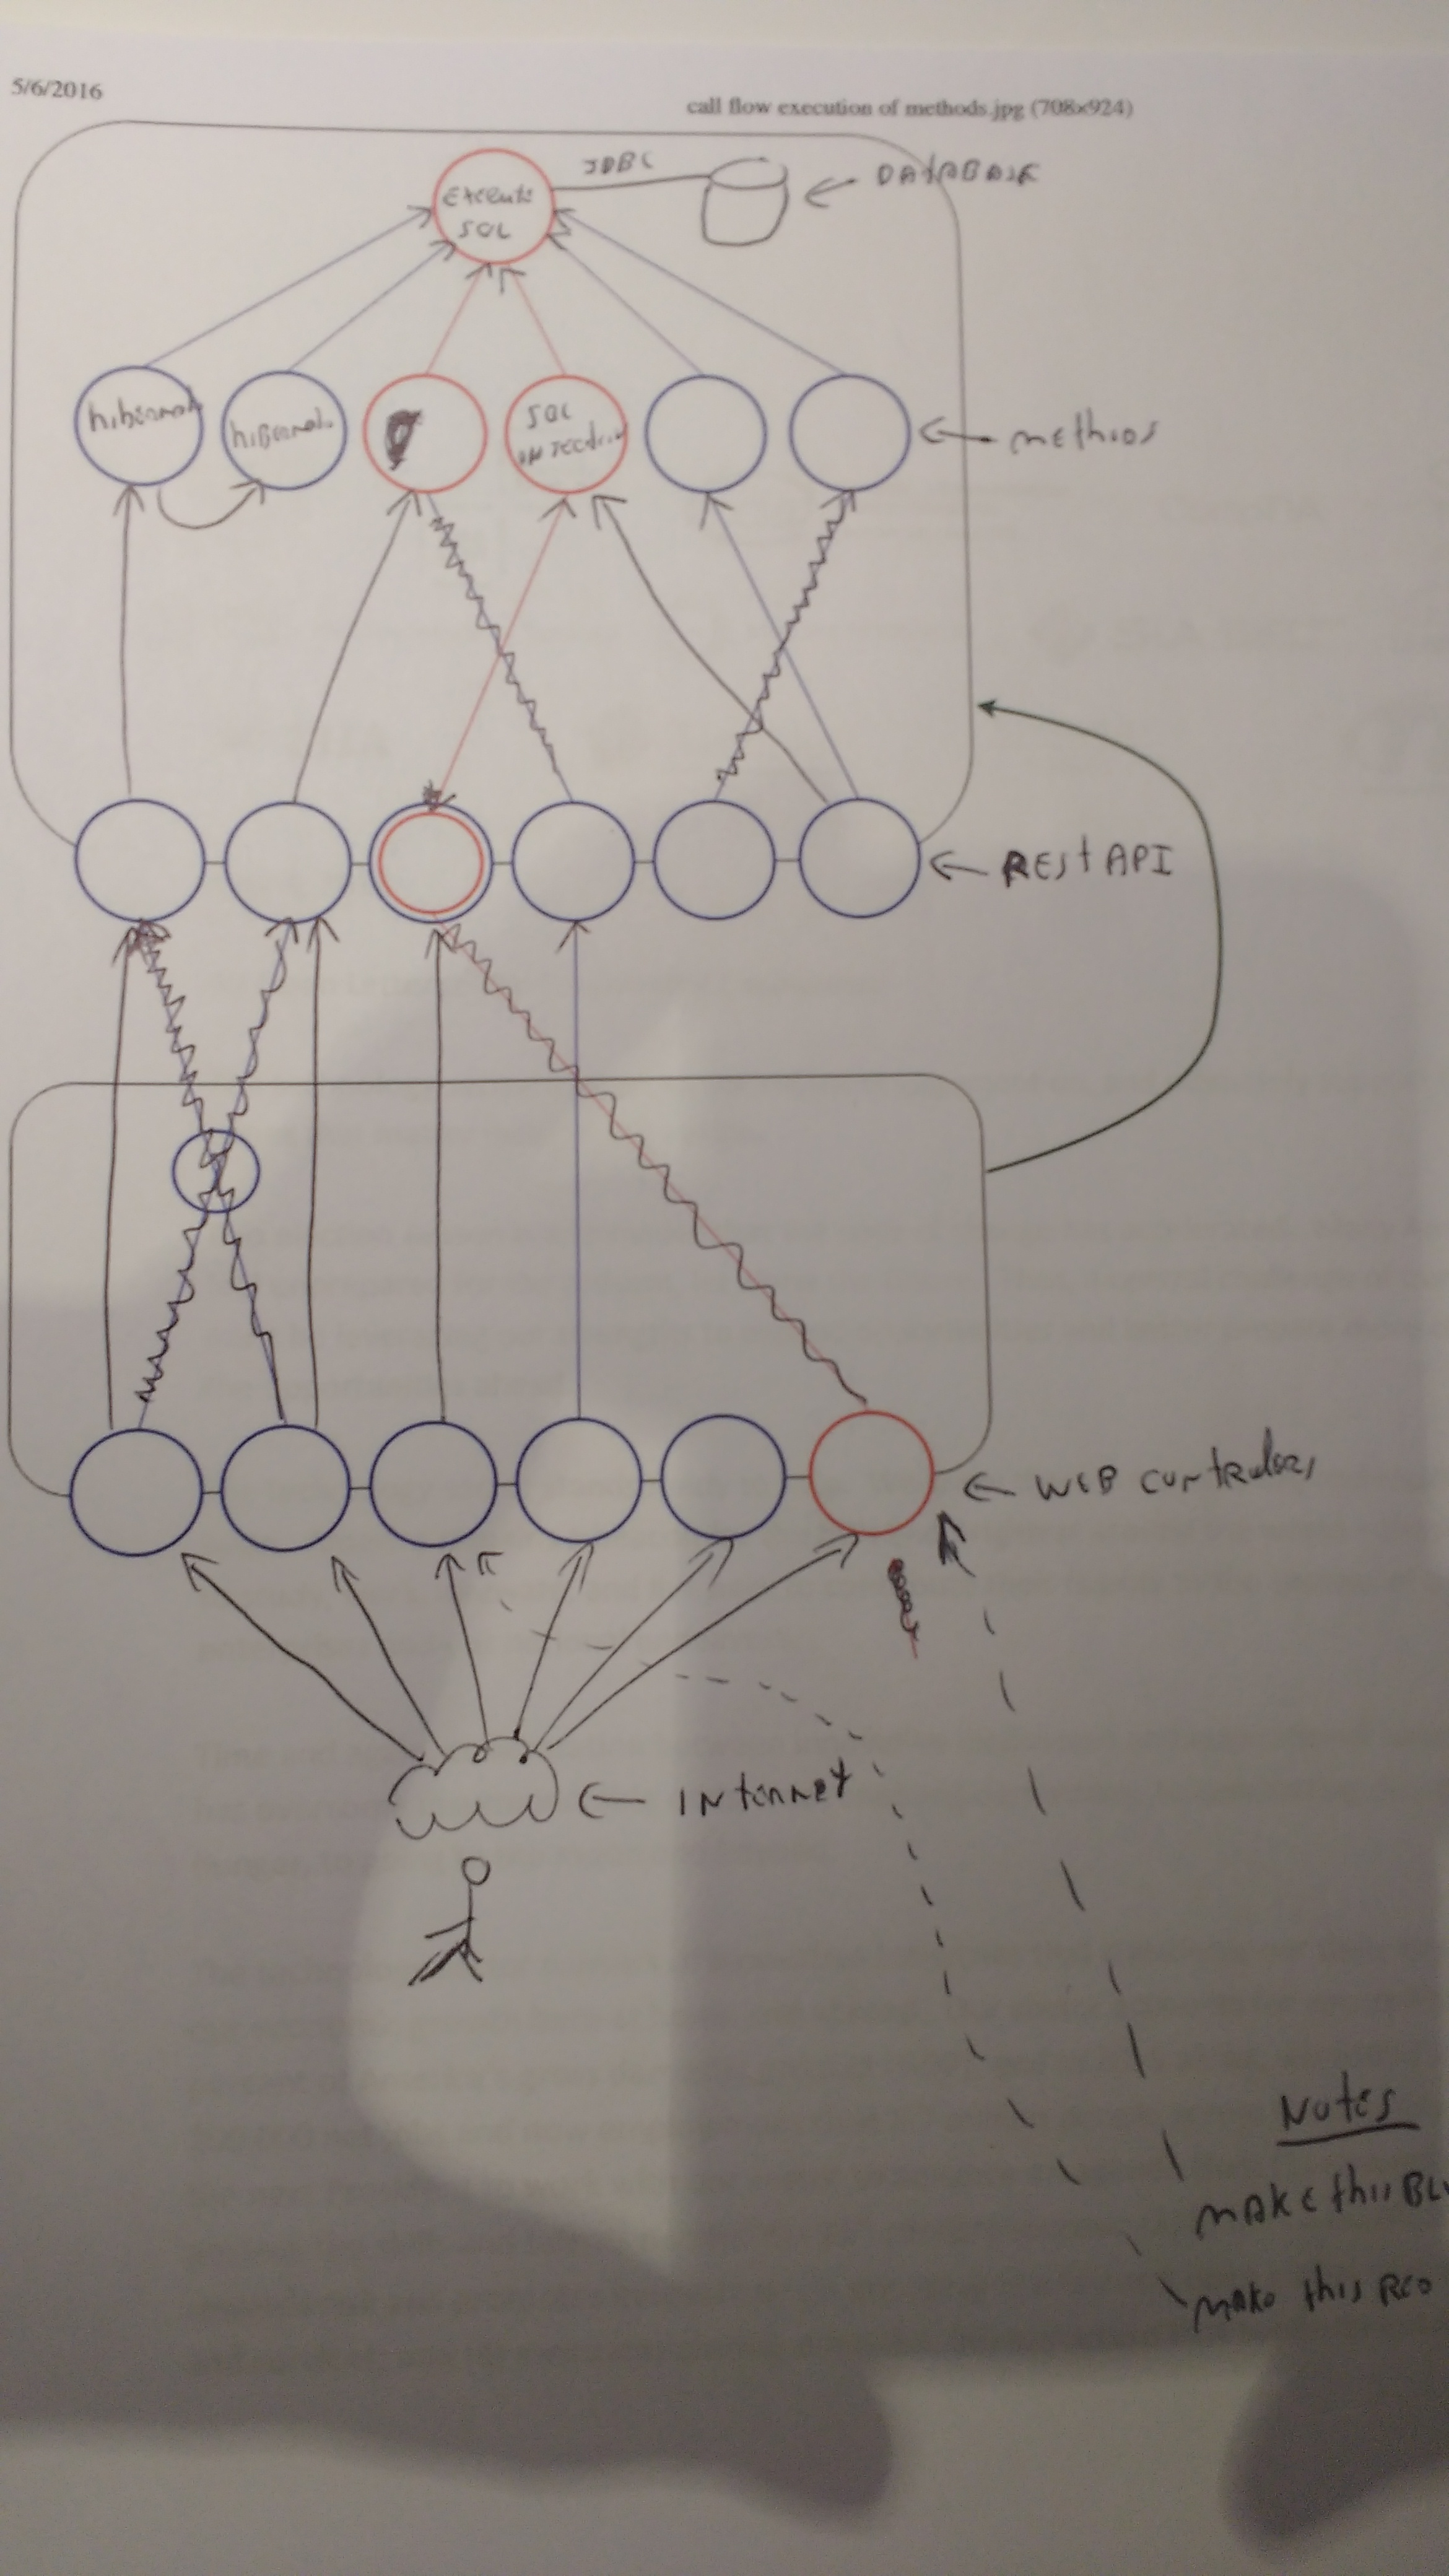 5/6/2016
call flow execution of methods.jpg (708x924)
JDBC
DATABASE
Execute
SQL
hibernate
hibernate
SQL
INJECTION
methods
REST API
WEB controllers
INternet
Notes
MAKE this BL
MAKE this RED